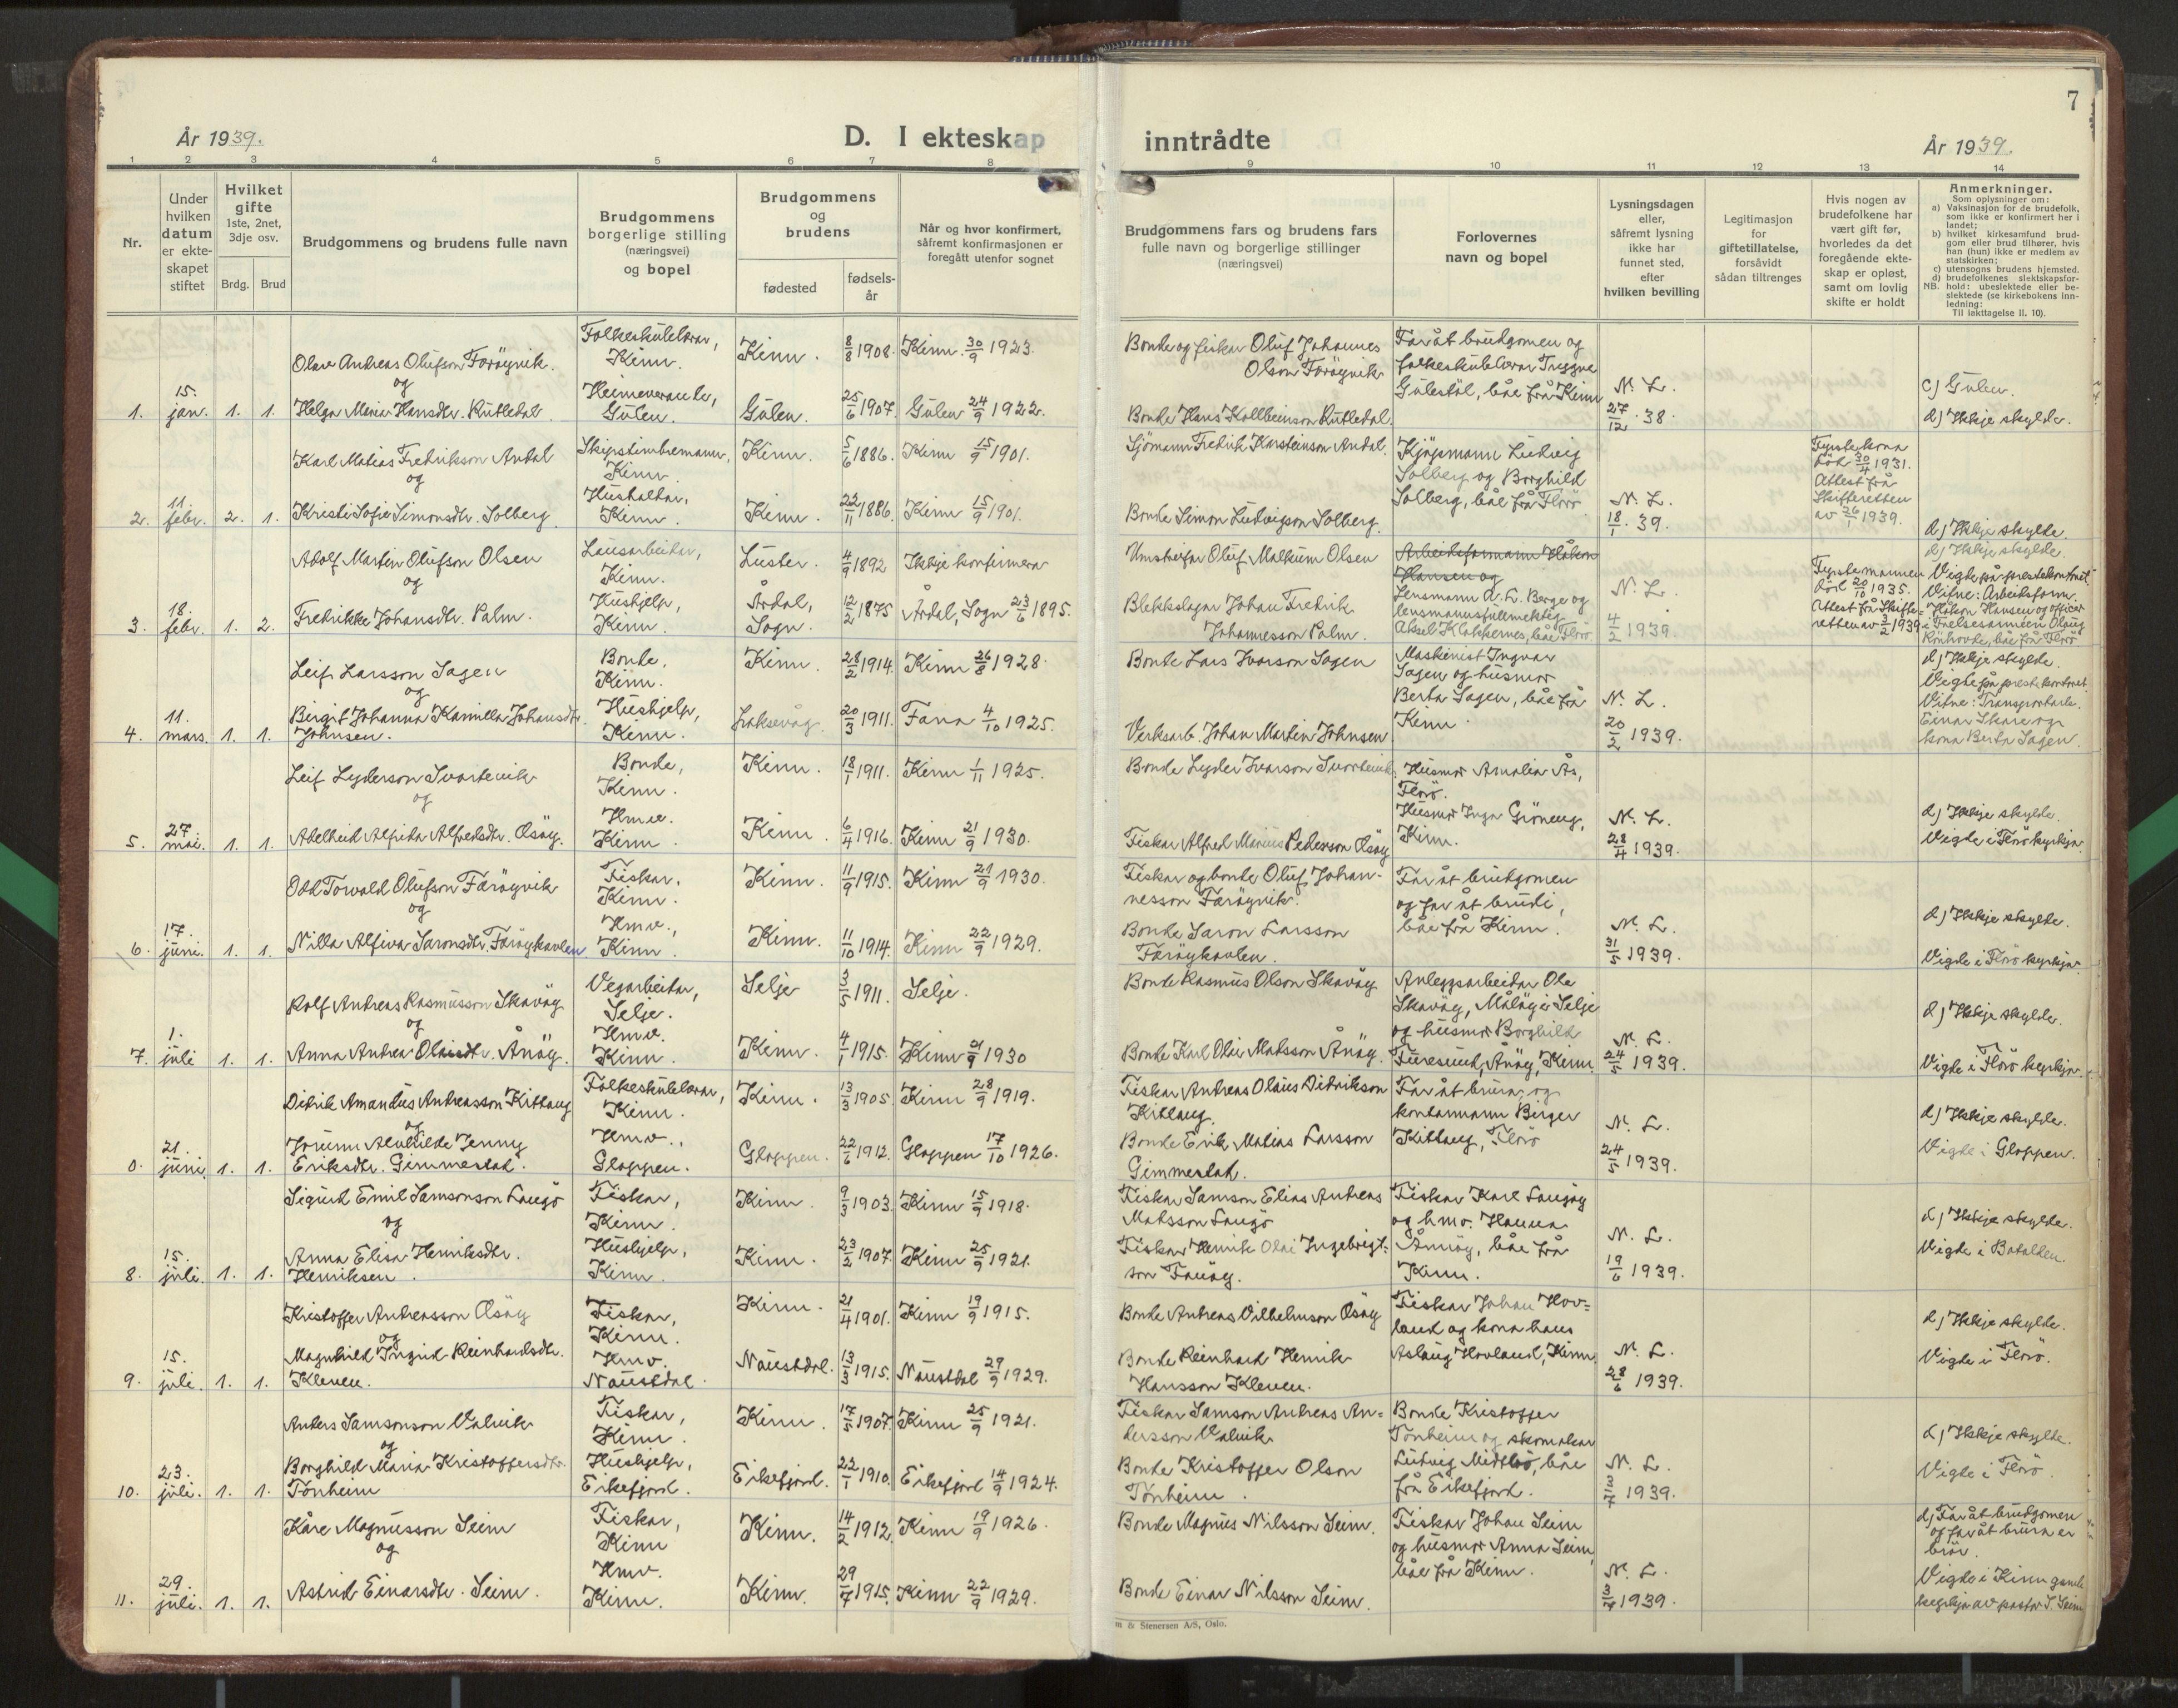 År 1939.
D. I ekteskap inntrådte
År 1939.
7
1 2 3 4 5 6 7 8 9 10 11 12 13 14
Nr.
Under hvilken datum er ekteskapet stiftet
Hvilket gifte
1ste, 2net, 3dje osv.
Brdg. Brud
Brudgommens og brudens fulle navn
Brudgommens borgerlige stilling
(næringsvei)
og bopel
Brudgommens og brudens
fødested
fødselsår
Når og hvor konfirmert,
såfremt konfirmasjonen er
foregått utenfor sognet
Brudgommens fars og brudens fars
fulle navn og borgerlige stillinger
(næringsvei)
Forlovernes
navn og bopel
Lysningsdagen
eller,
såfremt lysning
ikke har
funnet sted,
efter
hvilken bevilling
Legitimasjon
for
giftetillatelse,
forsåvidt
sådan tiltrenges
Hvis nogen av
brudefolkene har
vært gift før,
hvorledes da det
foregående ekte-
skap er opløst,
samt om lovlig
skifte er holdt
Anmerkninger.
Som oplysninger om:
a) Vaksinasjon for de brudefolk,
som ikke er konfirmert her i
landet;
b) hvilket kirkesamfund brud-
gom eller brud tilhører, hvis
han (hun) ikke er medlem av
statskirken;
c) utensogns brudens hjemsted.
d) brudefolkenes slektskapsfor-
NB. hold: ubeslektede eller be-
slektede (se kirkebokens inn-
ledning:
Til iakttagelse II. 10).
1. 15. jan. 1. 1.
Olav Andreas Olufson Færøyvik.
og
Helga Maria Hansdtr. Rutledal.
Folkeskulelærar,
Kinn.
Heimeverande,
Gulen.
Kinn. 8/8 1908. Kinn 30/9 1923.
Gulen. 25/6 1907. Gulen 24/9 1922.
Bonde og fiskar Oluf Johannes
Olson Færøyvik
Bonde Hans Kollbeinson Rutledal.
Far åt brudgomen og
folkeskulelærar Tryggve
Gulestöl, båe frå Kinn
N. L.
27/12. 38.
c) Gulen.
d) Ikkje skylde.
2. 11. febr. 2. 1.
Karl Matias Fredrikson Ardal
og
Kristi Sofie Simonsdtr. Solberg
Skipstimbremann,
Kinn.
Hushaldar,
Kinn.
Kinn. 5/6 1886. Kinn 15/9 1901.
Kinn. 22/11 1886. Kinn 15/9 1901.
Sjömann Fredrik Karsteinson Ardal.
Bonde Simon Ludvigson Solberg.
Kjöpmann Ludvig
Solberg og Borghild
Solberg, båe frå Florö
N. L.
18/1. 39.
Fyrste kona
död 30/4 1931.
Attest frå
Skifteretten
av 26/1 1939.
d) Ikkje skylde.
3. 18. febr. 1. 2.
Adolf Martin Olufson Olsen
og
Fredrikke Johansdtr. Palm.
Lausarbeidar,
Kinn.
Hushjelp,
Kinn.
Luster. 4/9 1892 Ikkje konfirmera
Årdal, Sogn. 12/2 1875 Årdal, Sogn 23/6 1895.
Umstreifar Oluf Malkum Olsen
Blekkslagar Johan Fredrik
Johannesson Palm.
Arbeidsformann Håkon
Hansen og
Lensmann A. L. Berge og
lensmannsfullmektig
Aksel Klokkernes, båe Florö.
N. L.
4/2 1939.
Fyrste mannen
död 20/10 1935.
Attest frå Skifte-
retten av 3/2 1939
d) Ikkje skylde.
Vigde på prestekontoret.
Vitne: Arbeidsform.
Håkon Hansen og officer
i Frelsesarmeen Olaug
Rönhovde, båe frå Florö
4. 11. mars. 1. 1.
Leif Larsson Sagen
og
Birgit Johanna Kamilla Johansdtr.
Johnsen.
Bonde,
Kinn.
Hushjelp,
Kinn.
Kinn. 28/2 1914. Kinn 26/8 1928.
Laksevåg. 20/3 1911. Fana 4/10 1925.
Bonde Lars Ivarson Sagen
Verksarb. Johan Martin Johnsen
Maskinist Ingvar
Sagen og husmor
Berta Sagen, båe frå
Kinn.
N. L.
20/2 1939.
d) Ikkje skylde.
Vigde på prestekontoret.
Vitne: Transportarb.
Einar Skare og
kona Berta Sagen.
5. 27. mai. 1. 1.
Leif Lyderson Svortevik
og
Adelheid Alfida Alfredsdtr. Osöy.
Bonde,
Kinn.
Hmv.
Kinn.
Kinn. 18/1 1911. Kinn 1/11 1925.
Kinn. 6/4 1916. Kinn 21/9 1930.
Bonde Lyder Ivarson Svortevik.
Fiskar Alfred Marius Pederson Osöy
Husmor Amalia Ås,
Florö.
Husmor Inga Gröneng,
Kinn.
N. L.
28/4 1939.
d) Ikkje skylde.
Vigde i Florö kyrkja.
6. 17. juni. 1. 1.
Odd Torvald Olufson Færöyvik
og
Nilla Alfiva Saronsdtr. Færöykavlen
Fiskar,
Kinn.
Hmv.,
Kinn.
Kinn. 11/9 1915. Kinn 21/9 1930.
Kinn. 11/10 1914. Kinn 22/9 1929.
Fiskar og bonde Oluf Johan-
nesson Færöyvik.
Bonde Saron Larsson
Færöykavlen.
Far åt brudgomen
og far åt brudi,
båe frå Kinn.
N. L.
31/5 1939.
d) Ikkje skylde.
Vigde i Florö kyrkja.
7. 1. juli 1. 1.
Rolf Andreas Rasmusson Skavöy
og
Anna Andrea Olaisdtr. Ånöy.
Vegarbeidar,
Selje.
Hmv.
Kinn.
Selje 3/5 1911. Selje.
Kinn. 4/1 1915. Kinn 21/9 1930
Bonde Rasmus Olson Skavöy
Bonde Karl Olai Matsson Ånöy.
Anleggsarbeidar Ole
Skavöy, Måløy i Selje
og husmor Borghild
Furesund, Ånöy, Kinn.
N. L.
24/5 1939.
d) Ikkje skylde.
Vigde i Florö kyrkja.
0. 21. juni. 1. 1.
Didrik Amandus Andreasson Kittang
og
Jorunn Alvhilde Jenny
Eriksdtr. Gimmestad.
Folkeskulelærar,
Kinn.
Hmv.,
Gloppen.
Kinn. 13/3 1905. Kinn 28/9 1919.
Gloppen. 22/6 1912. Gloppen 17/10 1926.
Fiskar Andreas Olaus Didrikson
Kittang.
Bonde Erik Matias Larsson
Gimmestad.
Far åt brura og
kontormann Birger
Kittang, Florö
N. L.
24/5 1939.
d) Ikkje skylde.
Vigde i Gloppen.
8. 15. juli. 1. 1.
Sigurd Emil Samsonson Langö
og
Anna Elisa Henriksdtr.
Henriksen.
Fiskar,
Kinn.
Hushjelp,
Kinn.
Kinn. 9/3 1903. Kinn 15/9 1918.
Kinn. 23/2 1907. Kinn 25/9 1921.
Fiskar Samson Elias Andreas
Matsson Langö
Fiskar Henrik Olai Ingebrigt-
son Fanöy.
Fiskar Karl Langöy
og hmv. Hanna
Ånnöy, båe frå
Kinn.
N. L.
19/6 1939.
d) Ikkje skylde.
Vigde i Batalden.
9. 15. juli. 1. 1.
Kristoffer Andreasson Osöy
og
Magnhild Ingrid Reinhardsdtr.
Kleven.
Fiskar,
Kinn.
Hmv.
Naustdal.
Kinn. 21/4 1901. Kinn 19/9 1915.
Naustdal. 13/3 1915. Naustdal 29/9 1929.
Bonde Andreas Vilhelmson Osöy
Bonde Reinhard Henrik
Hansson Kleven.
Fiskar Johan Hov-
land og kona hans
Aslaug Hovland, Kinn.
N. L.
28/6 1939.
d) Ikkje skylde.
Vigde i Florö.
10. 23. juli. 1. 1.
Anders Samsonson Valvik
og
Borghild Maria Kristoffersdtr.
Tonheim
Fiskar,
Kinn.
Hushjelp,
Eikefjord.
Kinn. 17/5 1907. Kinn 25/9 1921.
Eikefjord. 22/1 1910. Eikefjord 14/9 1924.
Fiskar Samson Andreas An-
dersson Valvik
Bonde Kristoffer Olson
Tonheim.
Bonde Kristoffer
Tonheim og skomakar
Ludvig Midtbö, båe
frå Eikefjord.
N. L.
3/7 1939.
d) Ikkje skylde.
Vigde i Florö.
11. 29. juli. 1. 1.
Kåre Magnusson Seim
og
Astrid Einarsdtr. Seim.
Fiskar,
Kinn
Hmv.
Kinn.
Kinn. 14/2 1912. Kinn 19/9 1926.
Kinn. 29/7 1915. Kinn 22/9 1929.
Bonde Magnus Nilsson Seim.
Bonde Einar Nilsson Seim.
Fiskar Johan Seim
og husmor Anna Seim,
båe frå Kinn.
N. L.
3/7 1939.
d) Far åt brudgomen
og far åt brura er
brör.
Vigde i Kinn gamle
kyrkja av pastor S. Seim
& Stenersen A/S, Oslo.